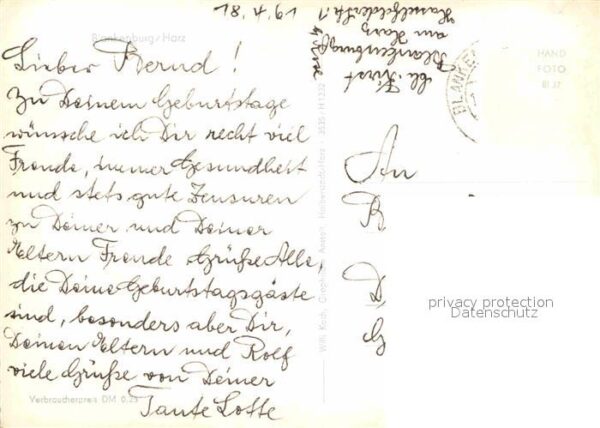 Blankenburg/Harz
18.4.61
Lieber Bernd!
Zu Deinem Geburtstage
wünsche ich Dir recht viel
Freude, immer Gesundheit
und stets gute Zensuren
zu Deiner und Deiner
Eltern Freude Grüße Alle,
die Deine Geburtstagsgäste
sind, besonders aber Dir,
Deinen Eltern und Rolf
viele Grüße von Deiner
Tante Lotte
Verbraucherpreis DM 0,25
Blankenburg
am Harz
HAND
FOTO
An
B
D
G
privacy protection
Datenschutz